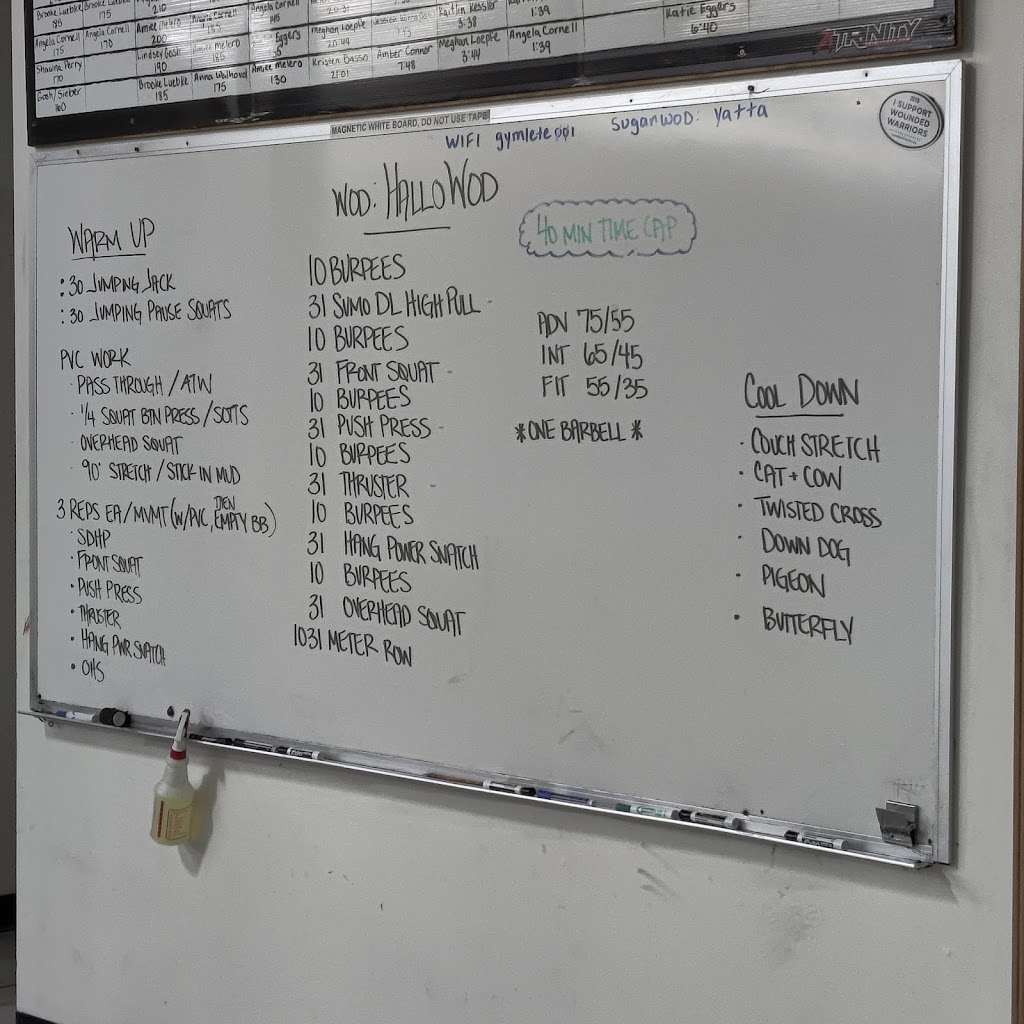 Brooke Luebke
185
Brooke Luebke
175
210
Angela Cornell
175
Angela Cornell
170
Aimee Melero
200
Angela Cornell
185
Angela Cornell
145
Kaitlin Kessler
3:38
1:39
Katie Eggers
6:40
Shawna Perry
170
Lindsey Gosh
190
Aimee Melero
185
Eggers
Meghan Loepke
20:44
Meghan Loepke
3:44
Angela Cornell
1:39
Gosh/Sieber
160
Brooke Luebke
185
Anna Walhovd
175
Aimee Melero
130
Kristen Basso
21:01
Amber Connor
7:48
TRINITY
MAGNETIC WHITE BOARD, DO NOT USE TAPE
WIFI gymlete001
SugarWOD: Yatta
I SUPPORT
WOUNDED
WARRIORS
WARM UP
:30 JUMPING JACK
:30 JUMPING PAUSE SQUATS
PVC WORK
· PASS THROUGH / ATW
· 1/4 SQUAT BTN PRESS / SOTTS
· OVERHEAD SQUAT
· 90° STRETCH / STICK IN MUD
3 REPS EA/MVMT (W/PVC, THEN EMPTY BB)
· SDHP
· FRONT SQUAT
· PUSH PRESS
· THRUSTER
· HANG PWR SNATCH
· OHS
WOD: HALLOWOD
10 BURPEES
31 SUMO DL HIGH PULL -
10 BURPEES
31 FRONT SQUAT -
10 BURPEES
31 PUSH PRESS -
10 BURPEES
31 THRUSTER -
10 BURPEES
31 HANG POWER SNATCH
10 BURPEES
31 OVERHEAD SQUAT
1031 METER ROW
40 MIN TIME CAP
ADV 75/55
INT 65/45
FIT 55/35
*ONE BARBELL*
COOL DOWN
· COUCH STRETCH
· CAT + COW
· TWISTED CROSS
· DOWN DOG
· PIGEON
· BUTTERFLY